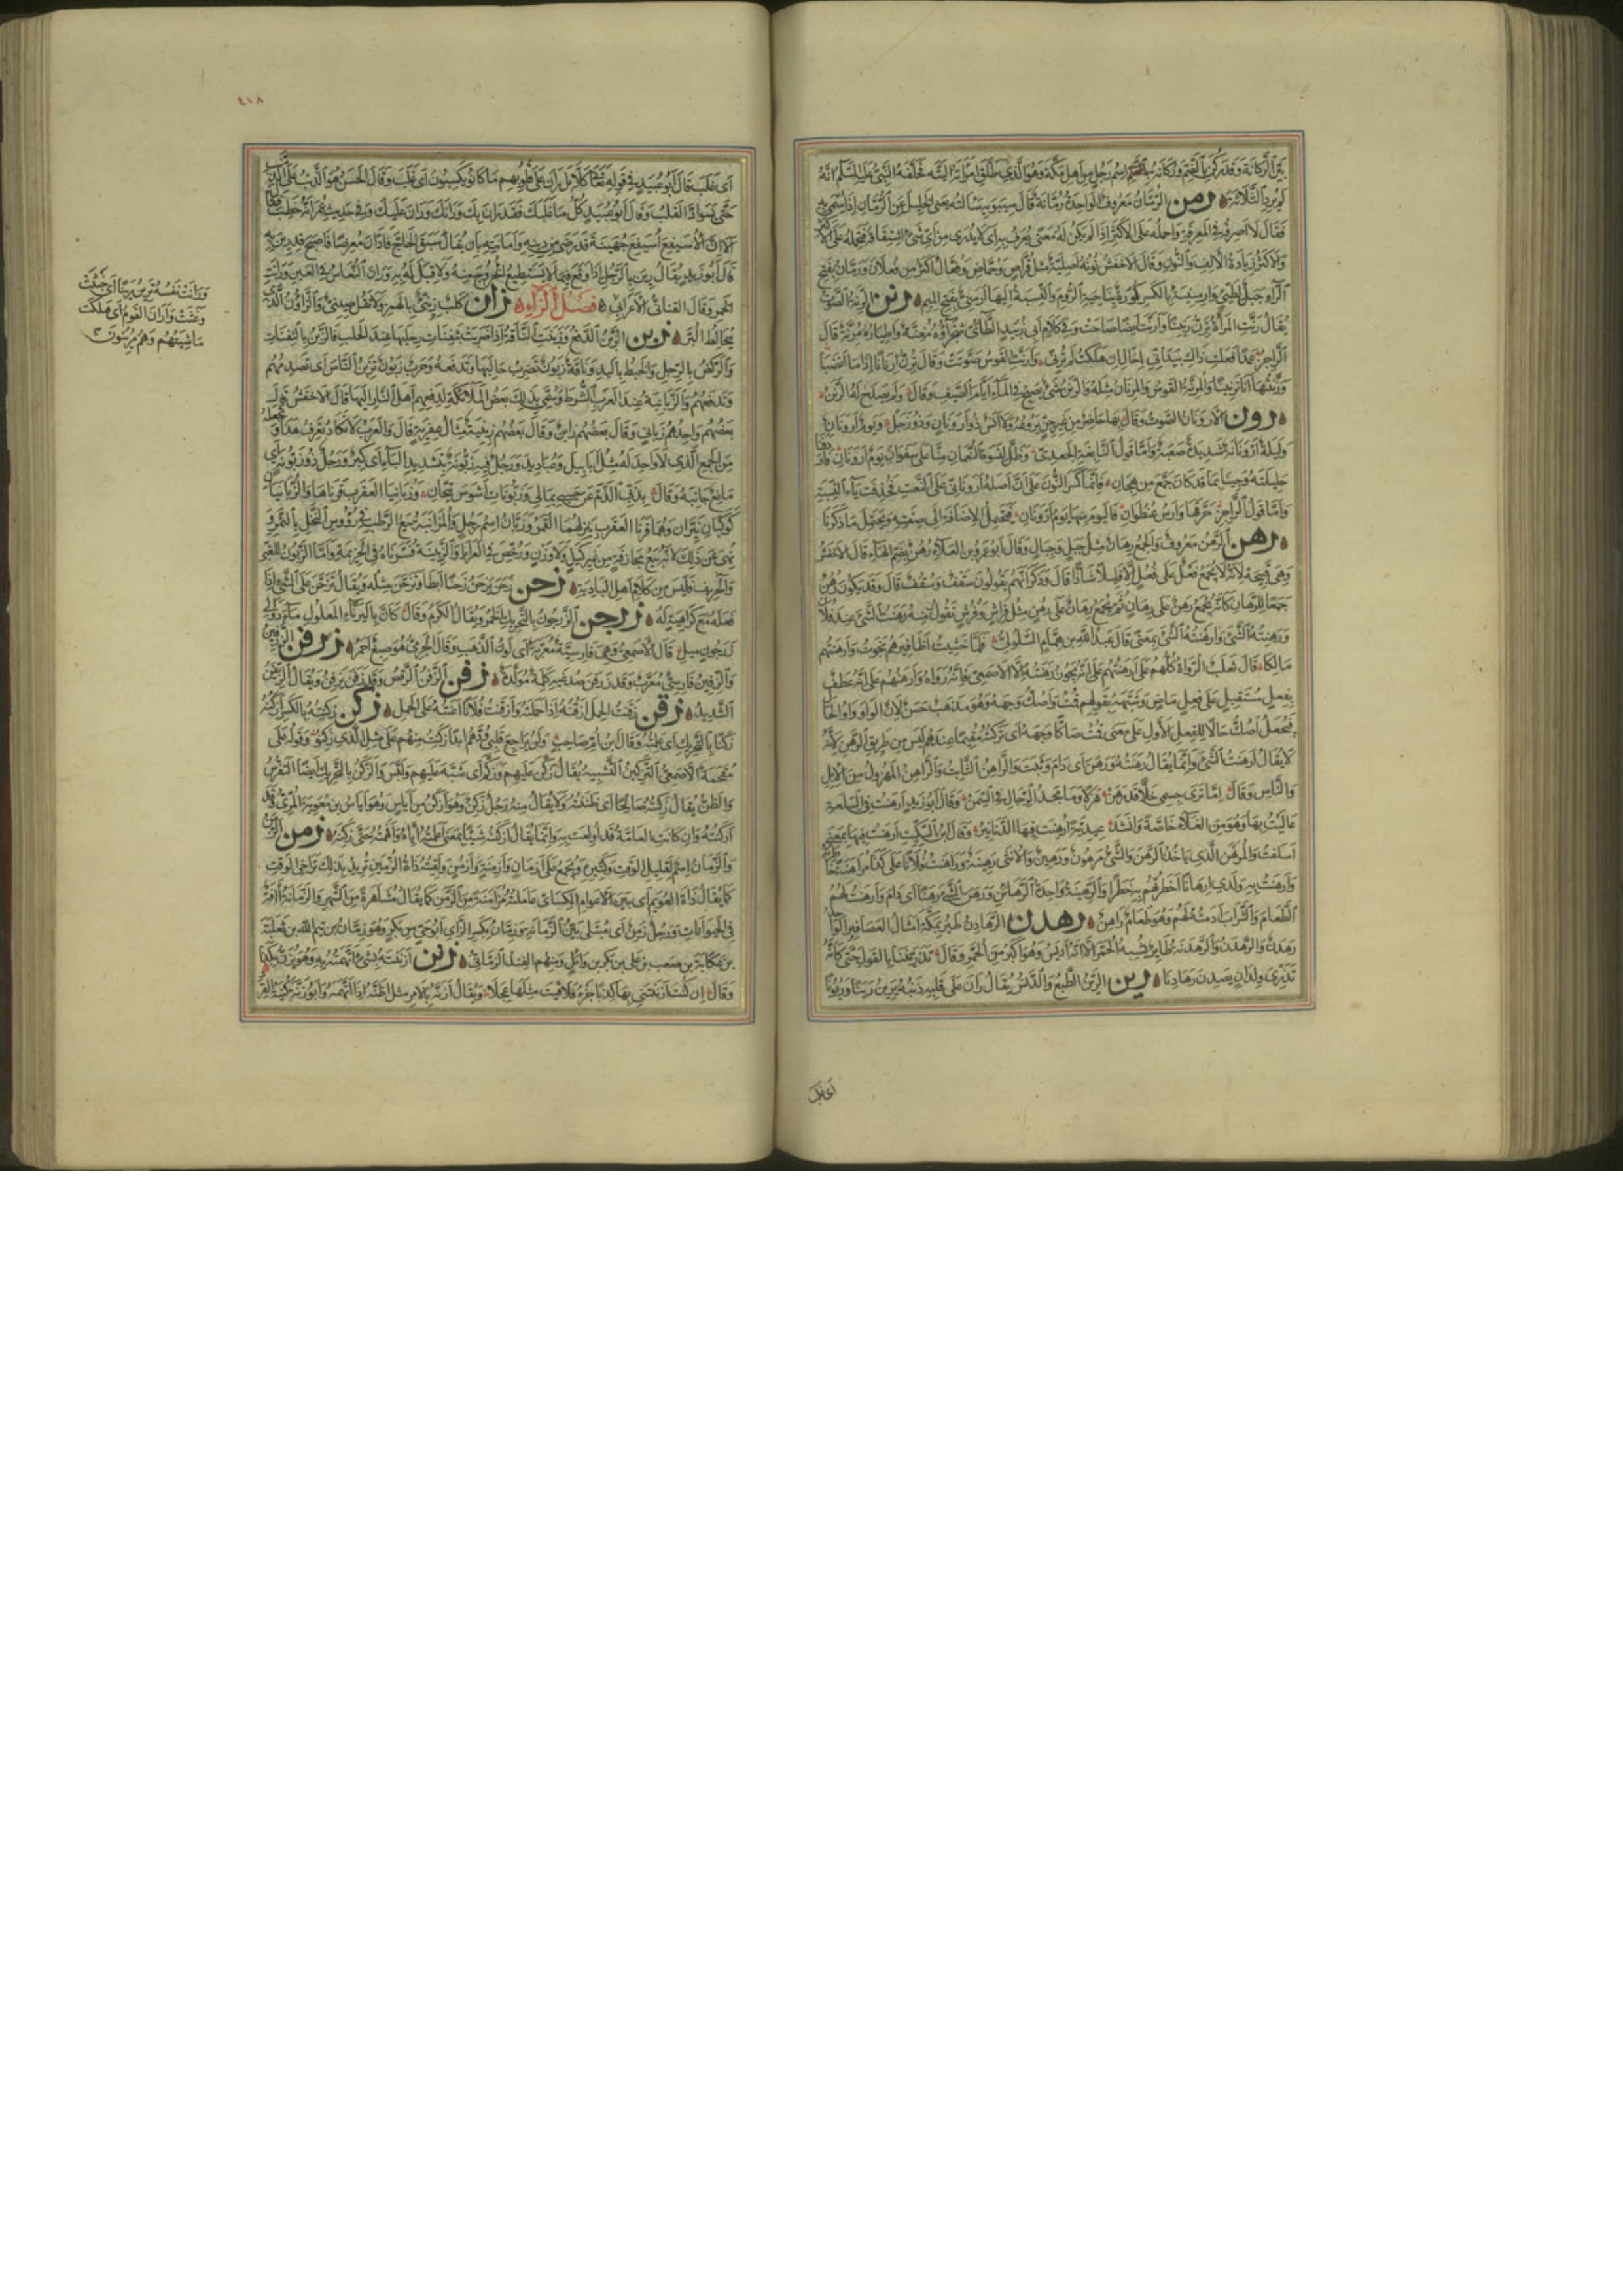 بين الركانة وقد ركن بالضم وركانة بالضم اسم رجل من اهل مكة وهو الذي طلق امراته البتة فحلفه النبي عليه السلم انه
لم يرد الثلاث ه رمن الرمان معروف الواحدة رمانة قال سيبويه سالته يعني الخليل عن الرمان اذا سمي به
فقال لا اصرفه في المعرفة واحمله على الاكثر اذا لم يكن له معنى يعرف به اي لا يدرى من اي شيء اشتقاقه فحمله على الاكثر
والاكثر زيادة الالف والنون وقال الاخفش نونه اصلية مثل قراص وحماض وفعال اكثر من فعلان ورمان بفتح
الراء جبل لطيئ وارمينية بالكسر كورة بناحية الروم والنسبة اليها ارمني بفتح الميم ه رنن الرنة الصوت
يقال رنت المراة ترن رنينا وارنت ايضا صاحت وفي كلام ابي زبيد الطائي شجراؤه مغنة واطياره مرنة قال
الراجز عمدا فعلت ذاك بيد اني اخال ان هلكت لم ترني وارنت القوس صوتت وقال ترن ارنانا اذا ما انضبا
ه رون الارونان الصوت وقال بها حاضر من غير جن يروعه ولا انس ذو ارونان وذو زجل ويوم ارونان
وليلة ارونانة شديدة صعبة واما قول النابغة الجعدي وظل لنسوة النعمان منا على سفوان يوم ارونان
واما قول الراجز حرقها وارس عنظوان فاليوم منها يوم ارونان فيحتمل الاضافة الى صفته ويحتمل ما ذكرنا
ه رهن الرهن معروف والجمع رهان مثل حبل وحبال وقال ابو عمرو بن العلاء رهن بضم الهاء قال الاخفش
وهي قبيحة لانه لا يجمع فعل على فعل الا قليلا شاذا قال وذكر انهم يقولون سقف وسقف قال وقد يكون رهن
جمعا للرهان كانه يجمع رهن على رهان ثم يجمع رهان على رهن مثل فراش وفرش تقول منه رهنت الشيء عند فلان
ورهنته الشيء وارهنته الشيء بمعنى قال عبد الله بن همام السلولي فلما خشيت اظافيرهم نجوت وارهنتهم
مالكا قال ثعلب الرواة كلهم على ارهنتهم على انه يجوز رهنته وارهنته الا الاصمعي فانه رواه وارهنهم على انه عطف
بفعل مستقبل على فعل ماض وشبهه بقولهم قمت واصك وجهه وهو مذهب حسن لان الواو واو الحال
فيجعل اصك حالا للفعل الاول على معنى قمت صاكا وجهه اي تركته مقيما عندهم ليس من طريق الرهن لانه
لا يقال ارهنت الشيء وانما يقال رهنته ورهن اي دام وثبت والراهن الثابت والراهن المهزول من الابل
والناس وقال اما ترى جسمي خلا قد رهن هزلا وما مجد الرجال في السمن وقال ابو زيد ارهنت في السلعة
غاليت بها وهو من الغلاء خاصة وانشد عيدية ارهنت فيها الدنانير وقال ابن السكيت ارهنت فيها بمعنى
اسلفت والمرتهن الذي ياخذ الرهن والشيء مرهون ورهين والانثى رهينة وراهنت فلانا على كذا مراهنة خاطرته
وارهنت به ولدي ارهانا اخطرتهم به خطرا والرهينة واحدة الرهائن ورهن الشيء رهنا اي دام وارهنت لهم
الطعام والشراب ادمته لهم وهو طعام راهن ه رهدن الرهادن طير بمكة امثال العصافير الواحد
تذري ولدان يصدن رهادنا ه رين الرين الطبع والدنس يقال ران على قلبه ذنبه يرين رينا وريونا
اي غلب
٤١٨
اي غلب قال ابو عبيد في قوله تعالى كلا بل ران على قلوبهم ما كانوا يكسبون اي غلب وقال الحسن هو الذنب على الذنب
حتى يسواد القلب وقال ابو عبيد كل ما غلبك فقد ران بك ورانك وران عليك وفي حديث عمر انه خطب فقال
الا ان الاسيفع اسيفع جهينة قد رضي من دينه وامانته بان يقال سبق الحاج فادان معرضا فاصبح قد رين به
قال ابو زيد يقال رين بالرجل اذا وقع فيما لا يستطيع الخروج منه ولا قبل له به وران النعاس في العين ورانت
الخمر وقال القناني الاعرابي ه فصل الزاء ه زان كلب زئني بالهمز ولا تقل صيني والزؤان الذي
يخالط البر ه زبن الزبن الدفع وزبنت الناقة اذا ضربت بثفنات رجليها عند الحلب فالزبن بالثفنات
والركض بالرجل والخبط باليد وناقة زبون تضرب حالبها وتدفعه وحرب زبون تزبن الناس اي تصدمهم
وتدفعهم والزبانية عند العرب الشرط وسمي بذلك بعض الملائكة لدفعهم اهل النار اليها قال الاخفش قال
بعضهم واحدهم زباني وقال بعضهم زابن وقال بعضهم زبنية مثال عفرية قال والعرب لا تكاد تعرف هذا وتجعله
من الجمع الذي لا واحد له مثل ابابيل وعباديد ورجل فيه زبونة بتشديد الباء اي كبر ورجل ذو زبونة اي
مانع جانبه وقال بذبي الذم عن حسبي بمالي وزبونات اشوس تيحان وزبانيا العقرب قرناها والزبانيان
كوكبان نيران وهما قرنا العقرب ينزلهما القمر وزبان اسم رجل والمزابنة بيع الرطب في رؤوس النخل بالتمر و
نهي عن ذلك لانه بيع مجازفة من غير كيل ولا وزن ورخص في العرايا
والحريف فليس من كلام اهل البادية ه زحن زحن يزحن زحنا ابطا وتزحن مثله ويقال تزحن على الشيء اذا
فعله مع كراهية له ه زرجن الزرجون بالتحريك الخمر ويقال الكرم وقال كان باليرناء المعلول ماء دوالي
زرجون ميل قال الاصمعي وهي فارسية معربة اي لون الذهب وقال الجرمي هو صبغ احمر ه زرفن الزرفين
والزرفين فارسي معرب وقد زرفن صدغيه كلمة مولدة ه زفن الزفن الرقص وقد زفن يزفن ويقال الزيفن
الشديد ه زقن زقنت الحمل ازقنه اذا حملته وازقنت فلانا اعنته على الحمل ه زكن زكنته بالكسر ازكنه
زكنا بالتحريك اي علمته وقال ابن ام صاحب ولن يراجع قلبي ودهم ابدا زكنت منهم على مثل الذي زكنوا وقوله على
مقحمة الاصمعي التزكين التشبيه يقال زكن عليهم وزكم اي شبه عليهم ولبس والزكن بالتحريك ايضا التفرس
والظن يقال زكنته صالحا اي ظننته ولا يقال منه رجل زكن وهو ازكن من اياس وهو اياس بن معوية المزني
ازكنته وان كانت العامة قد اولعت به وانما يقال ازكنته شيئا بمعنى اعلمته اياه وافهمته حتى زكنه ه زمن الزمن
والزمان اسم لقليل الوقت وكثيره ويجمع على ازمان وازمنة وازمن ولقيته ذات الزمين تريد بذلك تراخي الوقت
كما يقال ذات العويم اي بين الاعوام الكسائي عاملته مزامنة من الزمن كما يقال مشاهرة من الشهر والزمانة آفة
في الحيوانات ورجل زمن اي مبتلى بين الزمانة وزمان بكسر الزاي ابو حي من بكر وهو زمان بن تيم الله بن ثعلبة
بن عكابة بن صعب بن علي بن بكر بن وائل ومنهم الفند الزماني ه زنن ازننته بشيء اتهمته به وهو يزن بكذا
وقال ان كنت ازننتني بها كذبا جزء فلاقيت مثلها عجلا ويقال
ورانت نفسه ترين رينا اي خبثت
وغثت واران القوم اي هلكت
ماشيتهم وهم مرينون